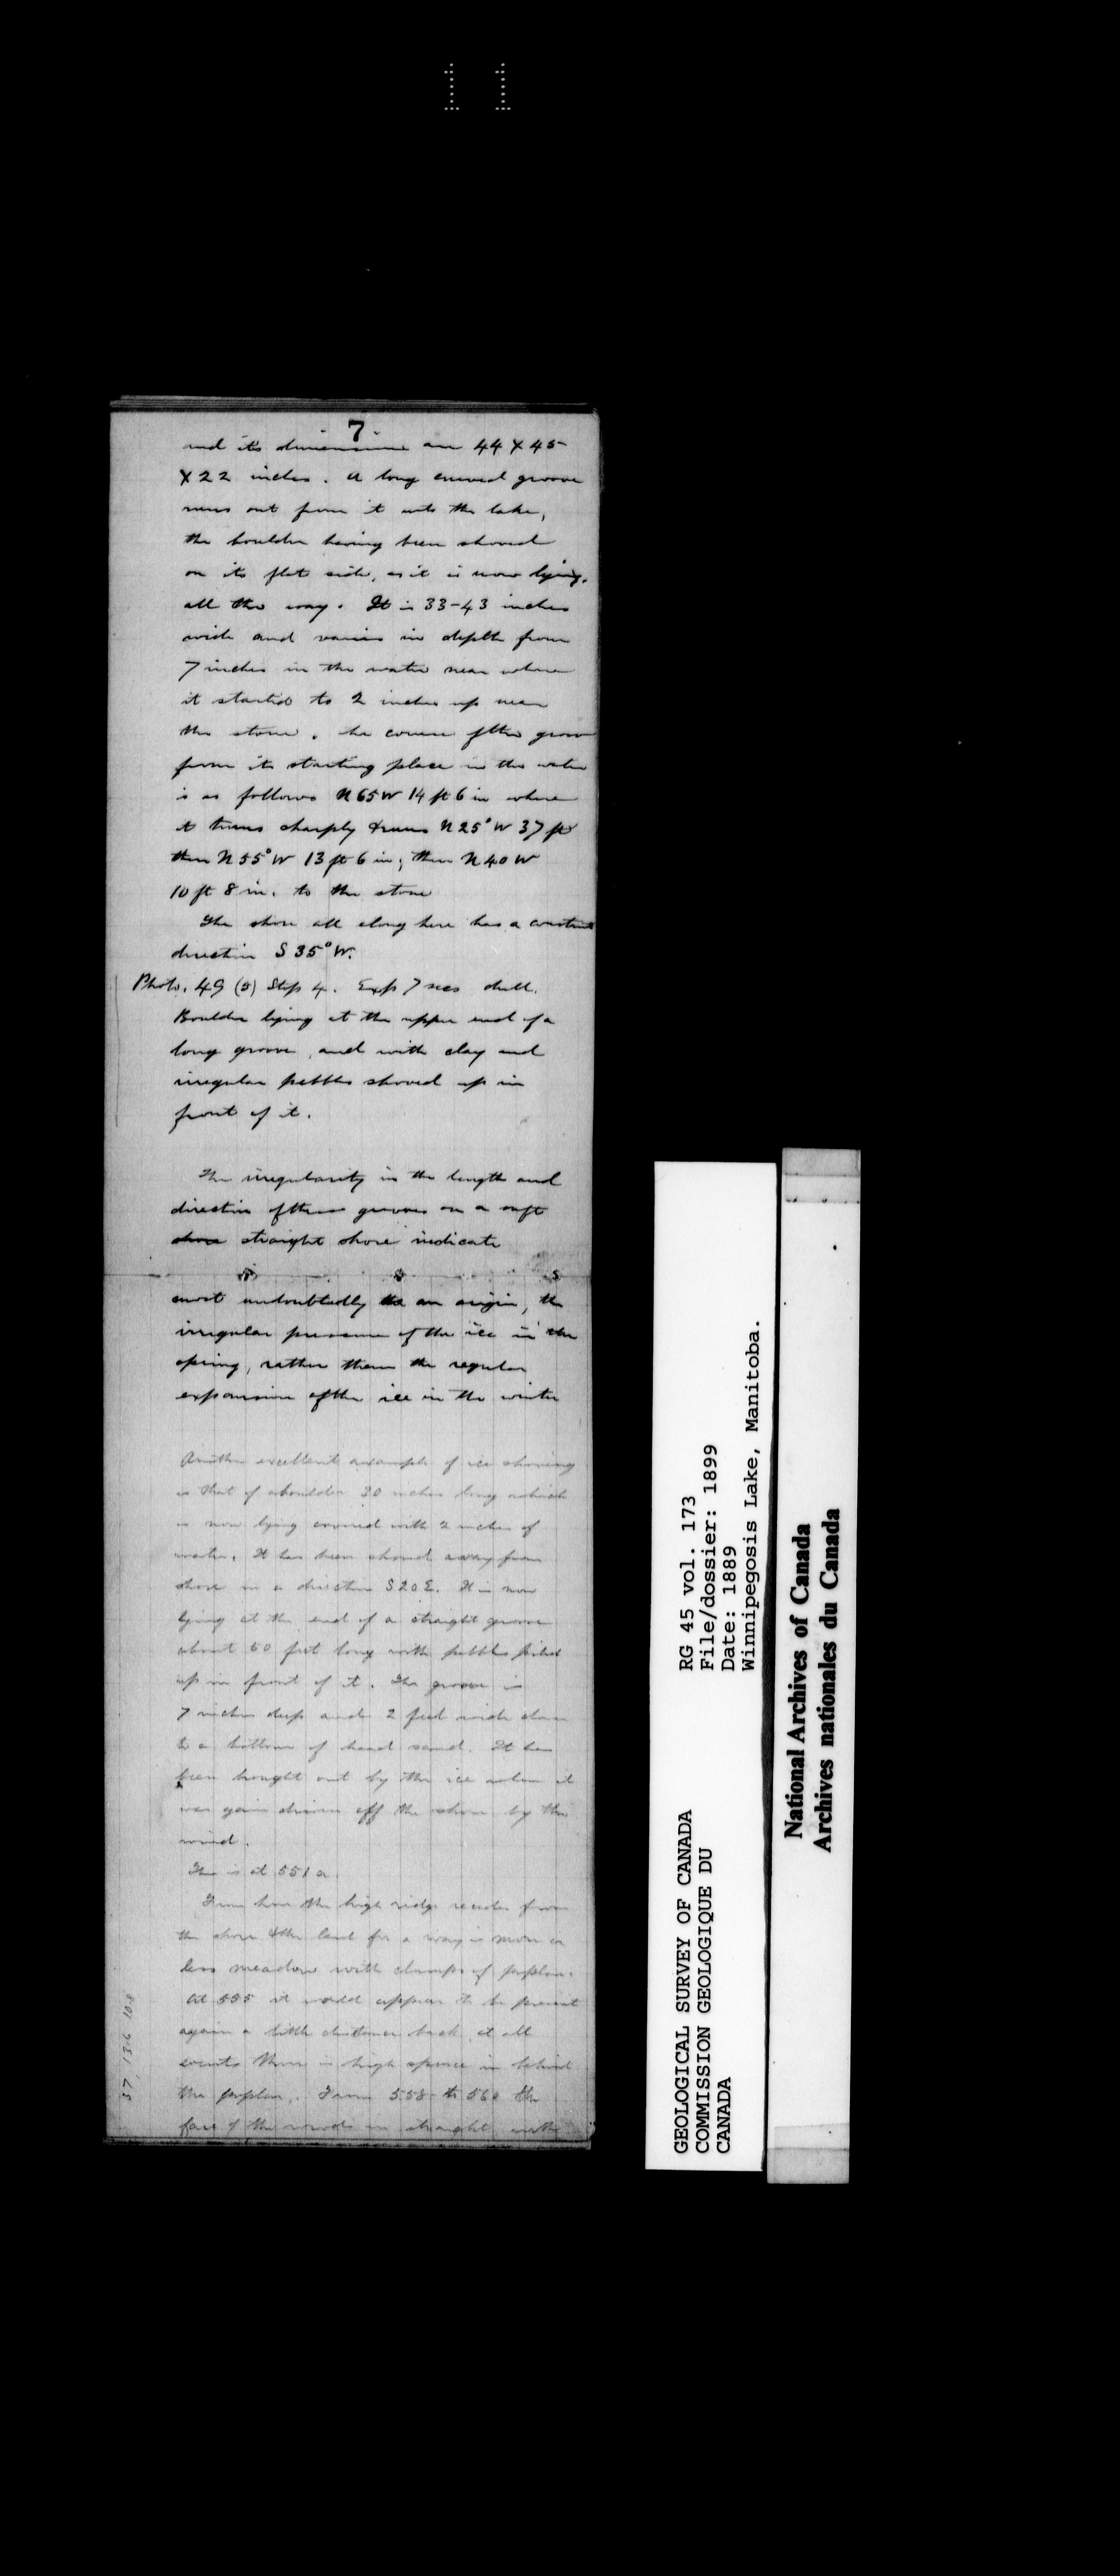 11
7
and its dimensions are 44 X 45
X 22 inches. A long curved groove
runs out from it into the lake,
the boulder having been shoved
on its flat side, as it is now lying,
all the way. It is 33-43 inches
wide and varies in depth from
7 inches in the water near where
it started to 2 inches up near
the stone. The course of the groove
from its starting place in the water
is as follows N65W 14 ft 6 in where
it turns sharply & runs N25°W 37 ft
then N55°W 13 ft 6 in; then N40W
10 ft 8 in. to the stone
The shore all along here has a constant
direction S35°W.
Photo. 49 (5) Stop 4. Exp 7 secs dull.
Boulder lying at the upper end of a
long groove, and with clay and
irregular pebbles shoved up in
front of it.
The irregularity in the length and
direction of these grooves on a soft
shore straight shore indicate
most undoubtedly as an origin, the
irregular pressure of the ice in the
spring, rather than the regular
expansion of the ice in the winter
Another excellent example of ice shoving
is that of a boulder 30 inches long which
is now lying covered with 2 inches of
water. It has been shoved away from
shore in a direction S20E. It is now
lying at the end of a straight groove
about 60 feet long with pebbles piled
up in front of it. The groove is
7 inches deep and 2 feet wide down
to a bottom of hard sand. It has
been brought out by the ice when it
was again driven off the shore by the
wind.
This is at 551a.
From here the high ridge recedes from
the shore & the land for a way is more or
less meadow with clumps of poplar.
At 555 it would appear to be present
again a little distance back, at all
events there is high spruce in behind
the poplar. From 558 to 560 the
face of the woods is straight with
37, 136 108
GEOLOGICAL SURVEY OF CANADA
COMMISSION GEOLOGIQUE DU
CANADA
RG 45 vol. 173
File/dossier: 1899
Date: 1889
Winnipegosis Lake, Manitoba.
National Archives of Canada
Archives nationales du Canada